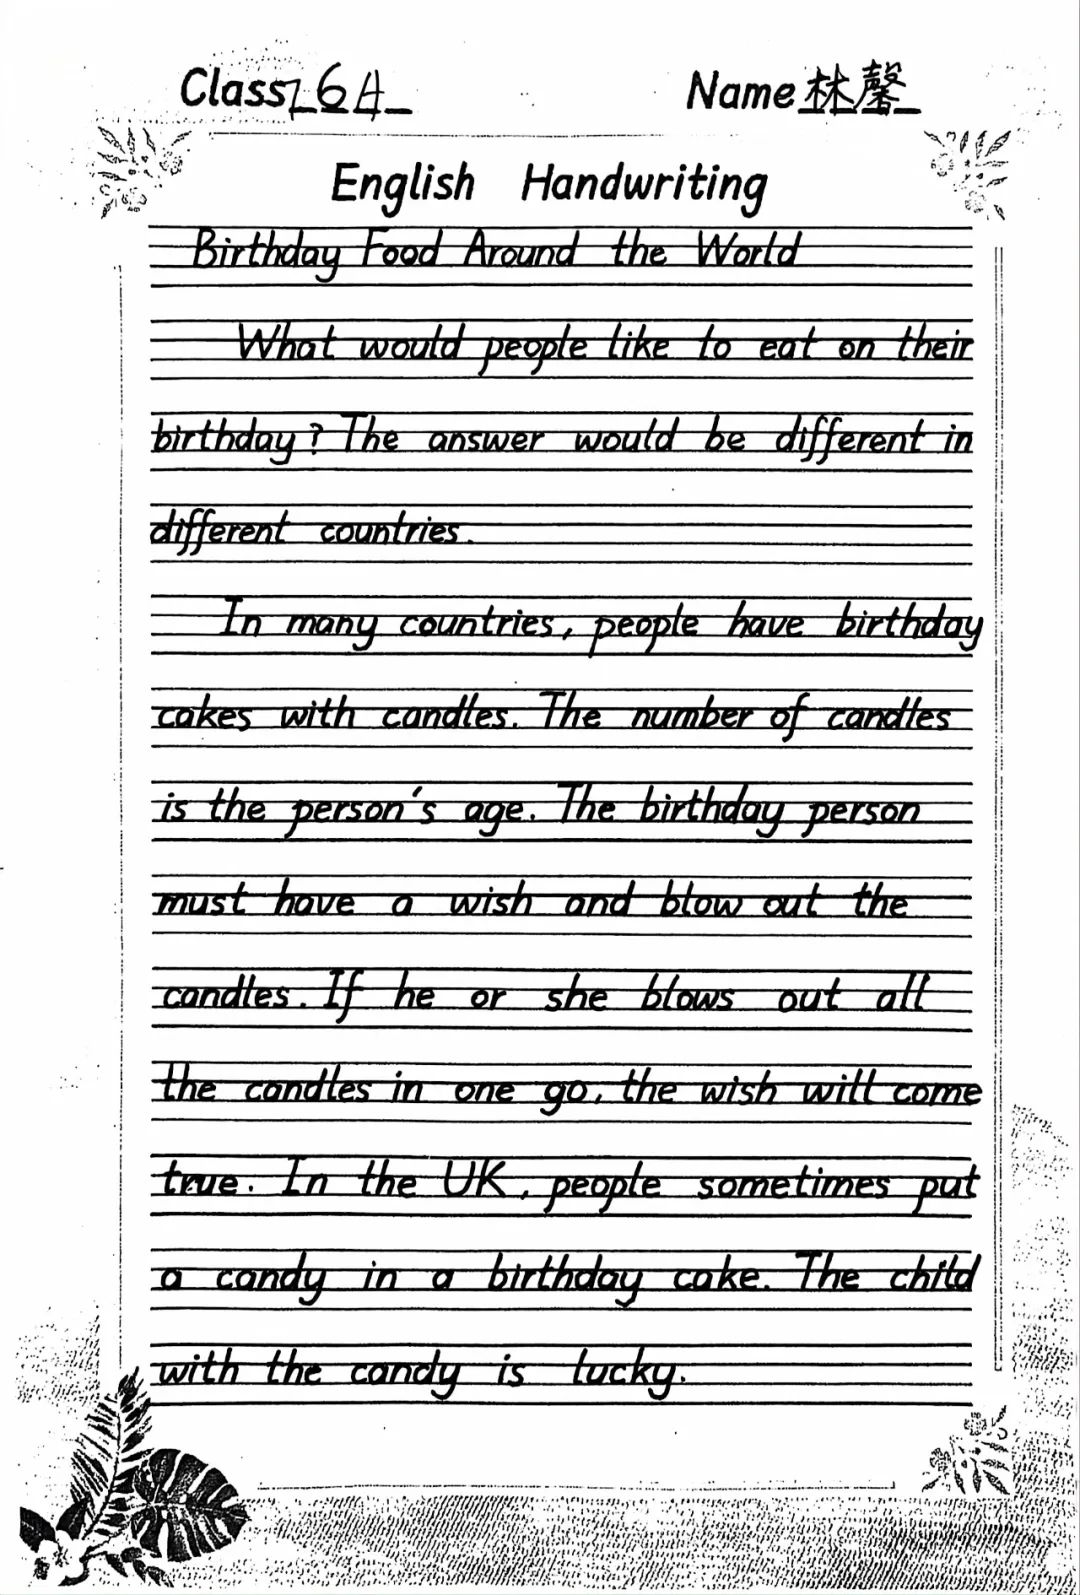 Class 6A Name 林馨
English Handwriting
Birthday Food Around the World
What would people like to eat on their
birthday? The answer would be different in
different countries.
In many countries, people have birthday
cakes with candles. The number of candles
is the person's age. The birthday person
must have a wish and blow out the
candles. If he or she blows out all
the candles in one go, the wish will come
true. In the UK, people sometimes put
a candy in a birthday cake. The child
with the candy is lucky.